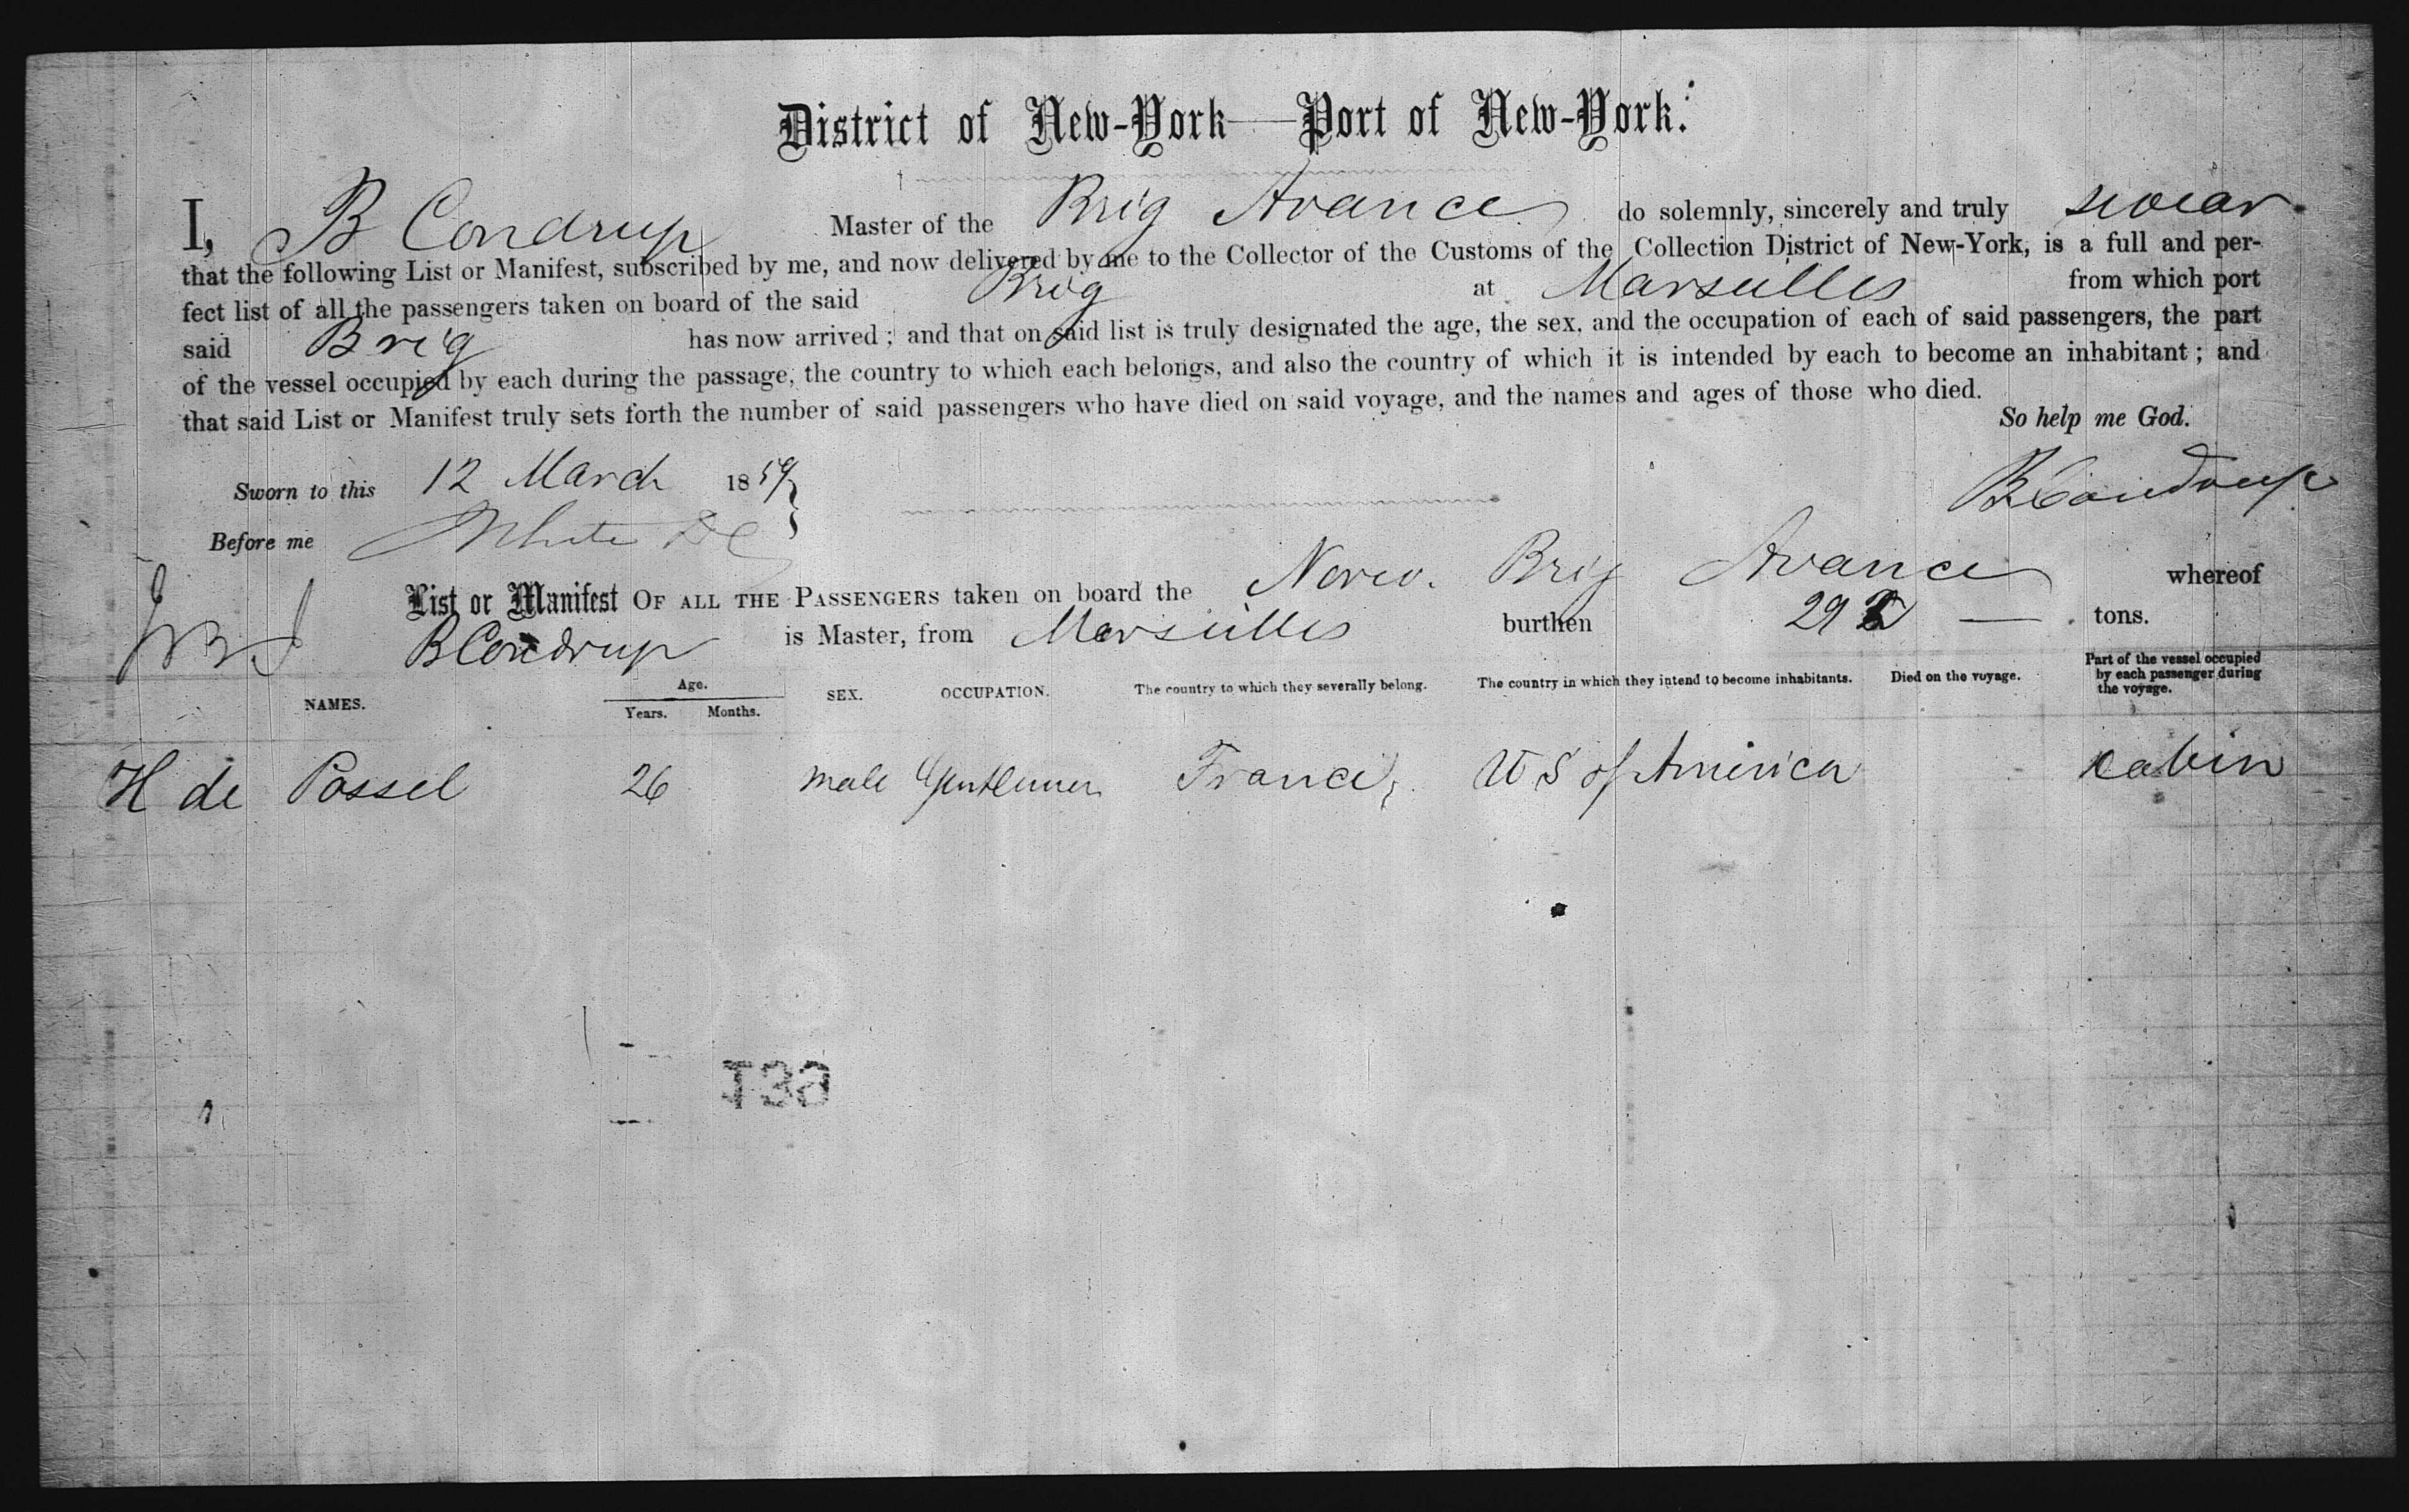 District of New-York—Port of New-York.
I, B Condrup Master of the Brig Avance do solemnly, sincerely and truly swear
that the following List or Manifest, subscribed by me, and now delivered by me to the Collector of the Customs of the Collection District of New-York, is a full and per-
fect list of all the passengers taken on board of the said Brig at Marseilles from which port
said Brig has now arrived; and that on said list is truly designated the age, the sex, and the occupation of each of said passengers, the part
of the vessel occupied by each during the passage, the country to which each belongs, and also the country of which it is intended by each to become an inhabitant; and
that said List or Manifest truly sets forth the number of said passengers who have died on said voyage, and the names and ages of those who died.
So help me God.
Sworn to this 12 March 1859
B Condrup
Before me White DC
List or Manifest OF ALL THE PASSENGERS taken on board the Norw. Brig Avance whereof
B Condrup is Master, from Marseilles burthen 29 tons.
NAMES. Age. Years. Months. SEX. OCCUPATION. The country to which they severally belong. The country in which they intend to become inhabitants. Died on the voyage. Part of the vessel occupied by each passenger during the voyage.
H de Possel 26 male Gentleman France, U S of America cabin